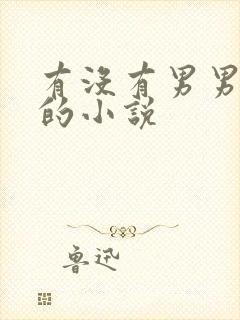 有没有男男
的小说
鲁迅